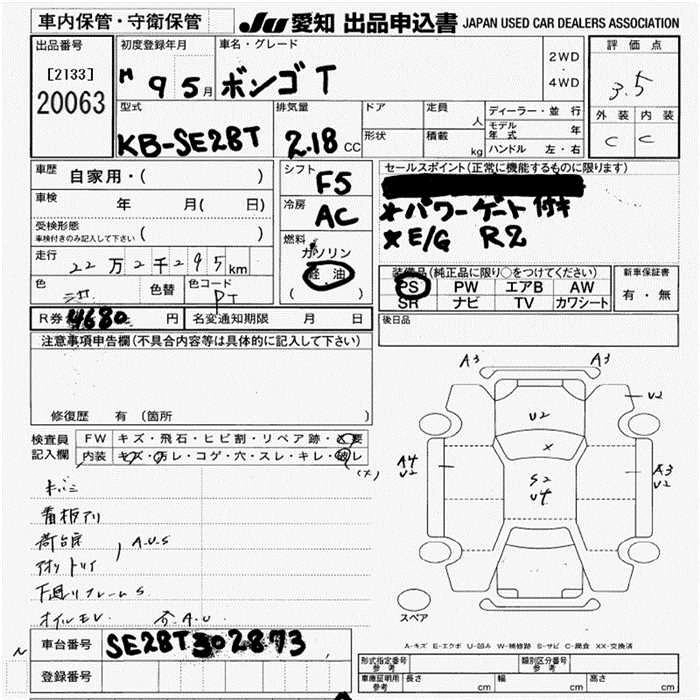 車内保管・守衛保管
JU 愛知 出品申込書 JAPAN USED CAR DEALERS ASSOCIATION
出品番号
[2133]
20063
初度登録年月
H 9 5 月
車名・グレード
ボンゴ T
2WD
・
4WD
評価点
3.5
外装 内装
C C
型式
KB-SE28T
排気量
2.18 CC
ドア
形状
定員
人
積載
kg
ディーラー・並行
モデル年式 年
ハンドル 左・右
車歴 自家用・( )
車検 年 月( 日)
受検形態
車検付きのみ記入して下さい ( )
走行 22万2千295km
色
色替
色コード
PT
シフト
F5
冷房
AC
燃料
ガソリン
軽油
( )
セールスポイント(正常に機能するものに限ります)
*パワーゲート付き
*E/G R2
装備品(純正品に限り○をつけてください)
PS PW エアB AW
SR ナビ TV カワシート
新車保証書
有・無
R券 4680 円 名変通知期限 月 日
後日品
注意事項申告欄(不具合内容等は具体的に記入して下さい)
修復歴 有 (箇所 )
検査員記入欄
FW キズ・飛石・ヒビ割・リペア跡・X要
内装 キズ・万レ・コゲ・穴・スレ・キレ・破レ
(x)
キバミ
看板アリ
荷台床 A.U.S
アオリ トリイ
下廻りフレーム S
A3 A3
U2
U2
X
A4
U2
S2
U4
A3
U2
スペア
A-キズ E-エクボ U-凹み W-補修跡 S-サビ C-腐食 XX-交換済
車台番号 SE28T302873
登録番号
型式指定番号 参考
類別区分番号 参考
車庫証明用 参考 長さ cm 幅 cm 高さ cm